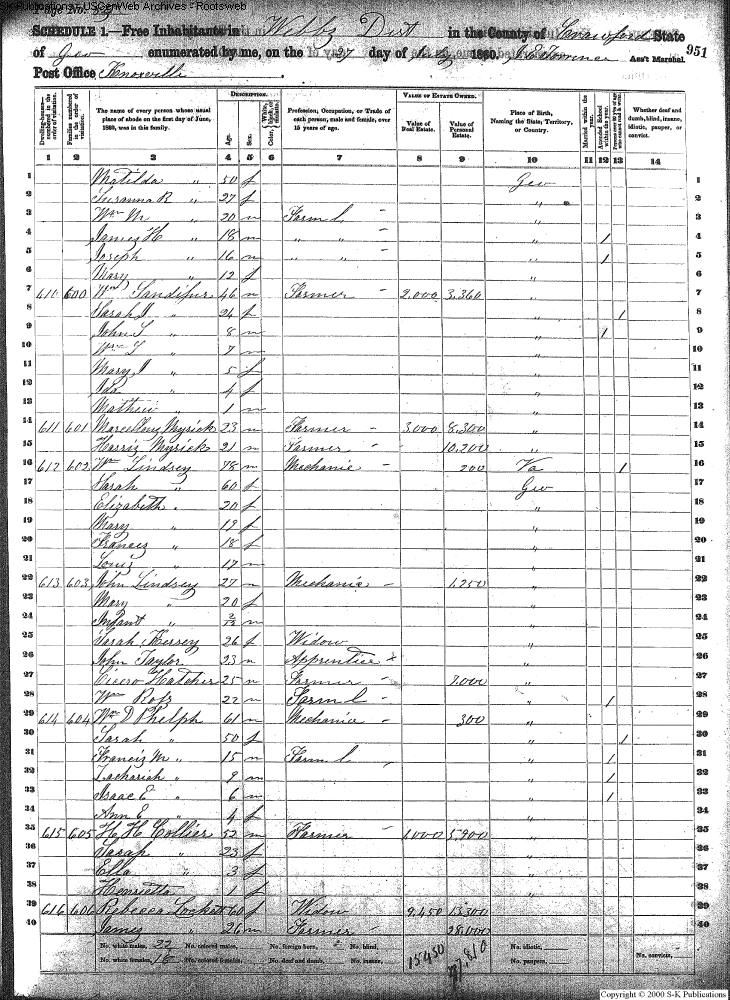 SK Publications - USGenWeb Archives - Rootsweb
Page No.
SCHEDULE 1.—Free Inhabitants in Webbs Dist in the County of Crawford State
of Geo enumerated by me, on the 27 day of 1860. Ass't Marshal. 951
Post Office Knoxville
DESCRIPTION. VALUE OF ESTATE OWNED.
Dwelling-houses— numbered in the order of visitation. Families numbered in the order of visitation. The name of every person whose usual place of abode on the first day of June, 1860, was in this family. Age. Sex. Color, White, black, or mulatto. Profession, Occupation, or Trade of each person, male and female, over 15 years of age. Value of Real Estate. Value of Personal Estate. Place of Birth, Naming the State, Territory, or Country. Married within the year. Attended School within the year. Persons over 20 y'rs of age who cannot read & write. Whether deaf and dumb, blind, insane, idiotic, pauper, or convict.
1 2 3 4 5 6 7 8 9 10 11 12 13 14
1 Matilda " 50 f Geo 1
2 Susanna R " 27 f " 2
3 Wm M " 20 m Farm L - " 3
4 James H " 18 m " " - " / 4
5 Joseph " 16 m " " - " / 5
6 Mary " 12 f " 6
7 610 600 Wm Sandifur 46 m Farmer - 2,000 3,360 " 7
8 Sarah J " 24 f " / 8
9 John S " 8 m " / 9
10 Wm T " 7 m " 10
11 Mary J " 5 f " 11
12 Ida " 4 f " 12
13 Mathew " 1 m " 13
14 611 601 Marcellous Myrick 23 m Farmer - 3,000 8,300 " 14
15 Harris Myrick 21 m Farmer - 10,200 " 15
16 612 602 Wm Lindsey 78 m Mechanic - 200 Va / 16
17 Sarah " 60 f Geo 17
18 Elizabeth " 20 f " 18
19 Mary " 19 f " 19
20 Francis " 18 f " 20
21 Louiz " 17 m " 21
22 613 603 John Lindsey 27 m Mechanic - 1,250 " 22
23 Mary " 20 f " 23
24 Infant " 2/12 m " 24
25 Sarah Kersey 26 f Widow " 25
26 John Taylor 23 m Apprentice " 26
27 Cicero Hatcher 25 m Farmer - 7,000 " 27
28 Wm 22 m Farm L - " / 28
29 614 604 Wm D Phelph 61 m Mechanic - 300 " 29
30 Sarah " 50 f " / 30
31 Francis M " 15 m Farm L " / 31
32 Zachariah " 9 m " / 32
33 Isaac E " 6 m " / 33
34 Ann E " 4 f " 34
35 615 605 H H Collier 52 m Farmer - 1,000 5,900 " 35
36 Sarah " 23 f " 36
37 Ella " 3 f " 37
38 Henrietta " 1 f " 38
39 616 606 Rebecca Lockett 60 f Widow 9,450 13,300 " 39
40 James " 26 m Farmer - 28,000 " 40
No. white males, 22 No. colored males, No. foreign born, No. blind, 15450 77,810 No. idiotic, No. convicts,
No. white females, 18 No. colored females, No. deaf and dumb, No. insane, No. paupers,
Copyright © 2000 S-K Publications